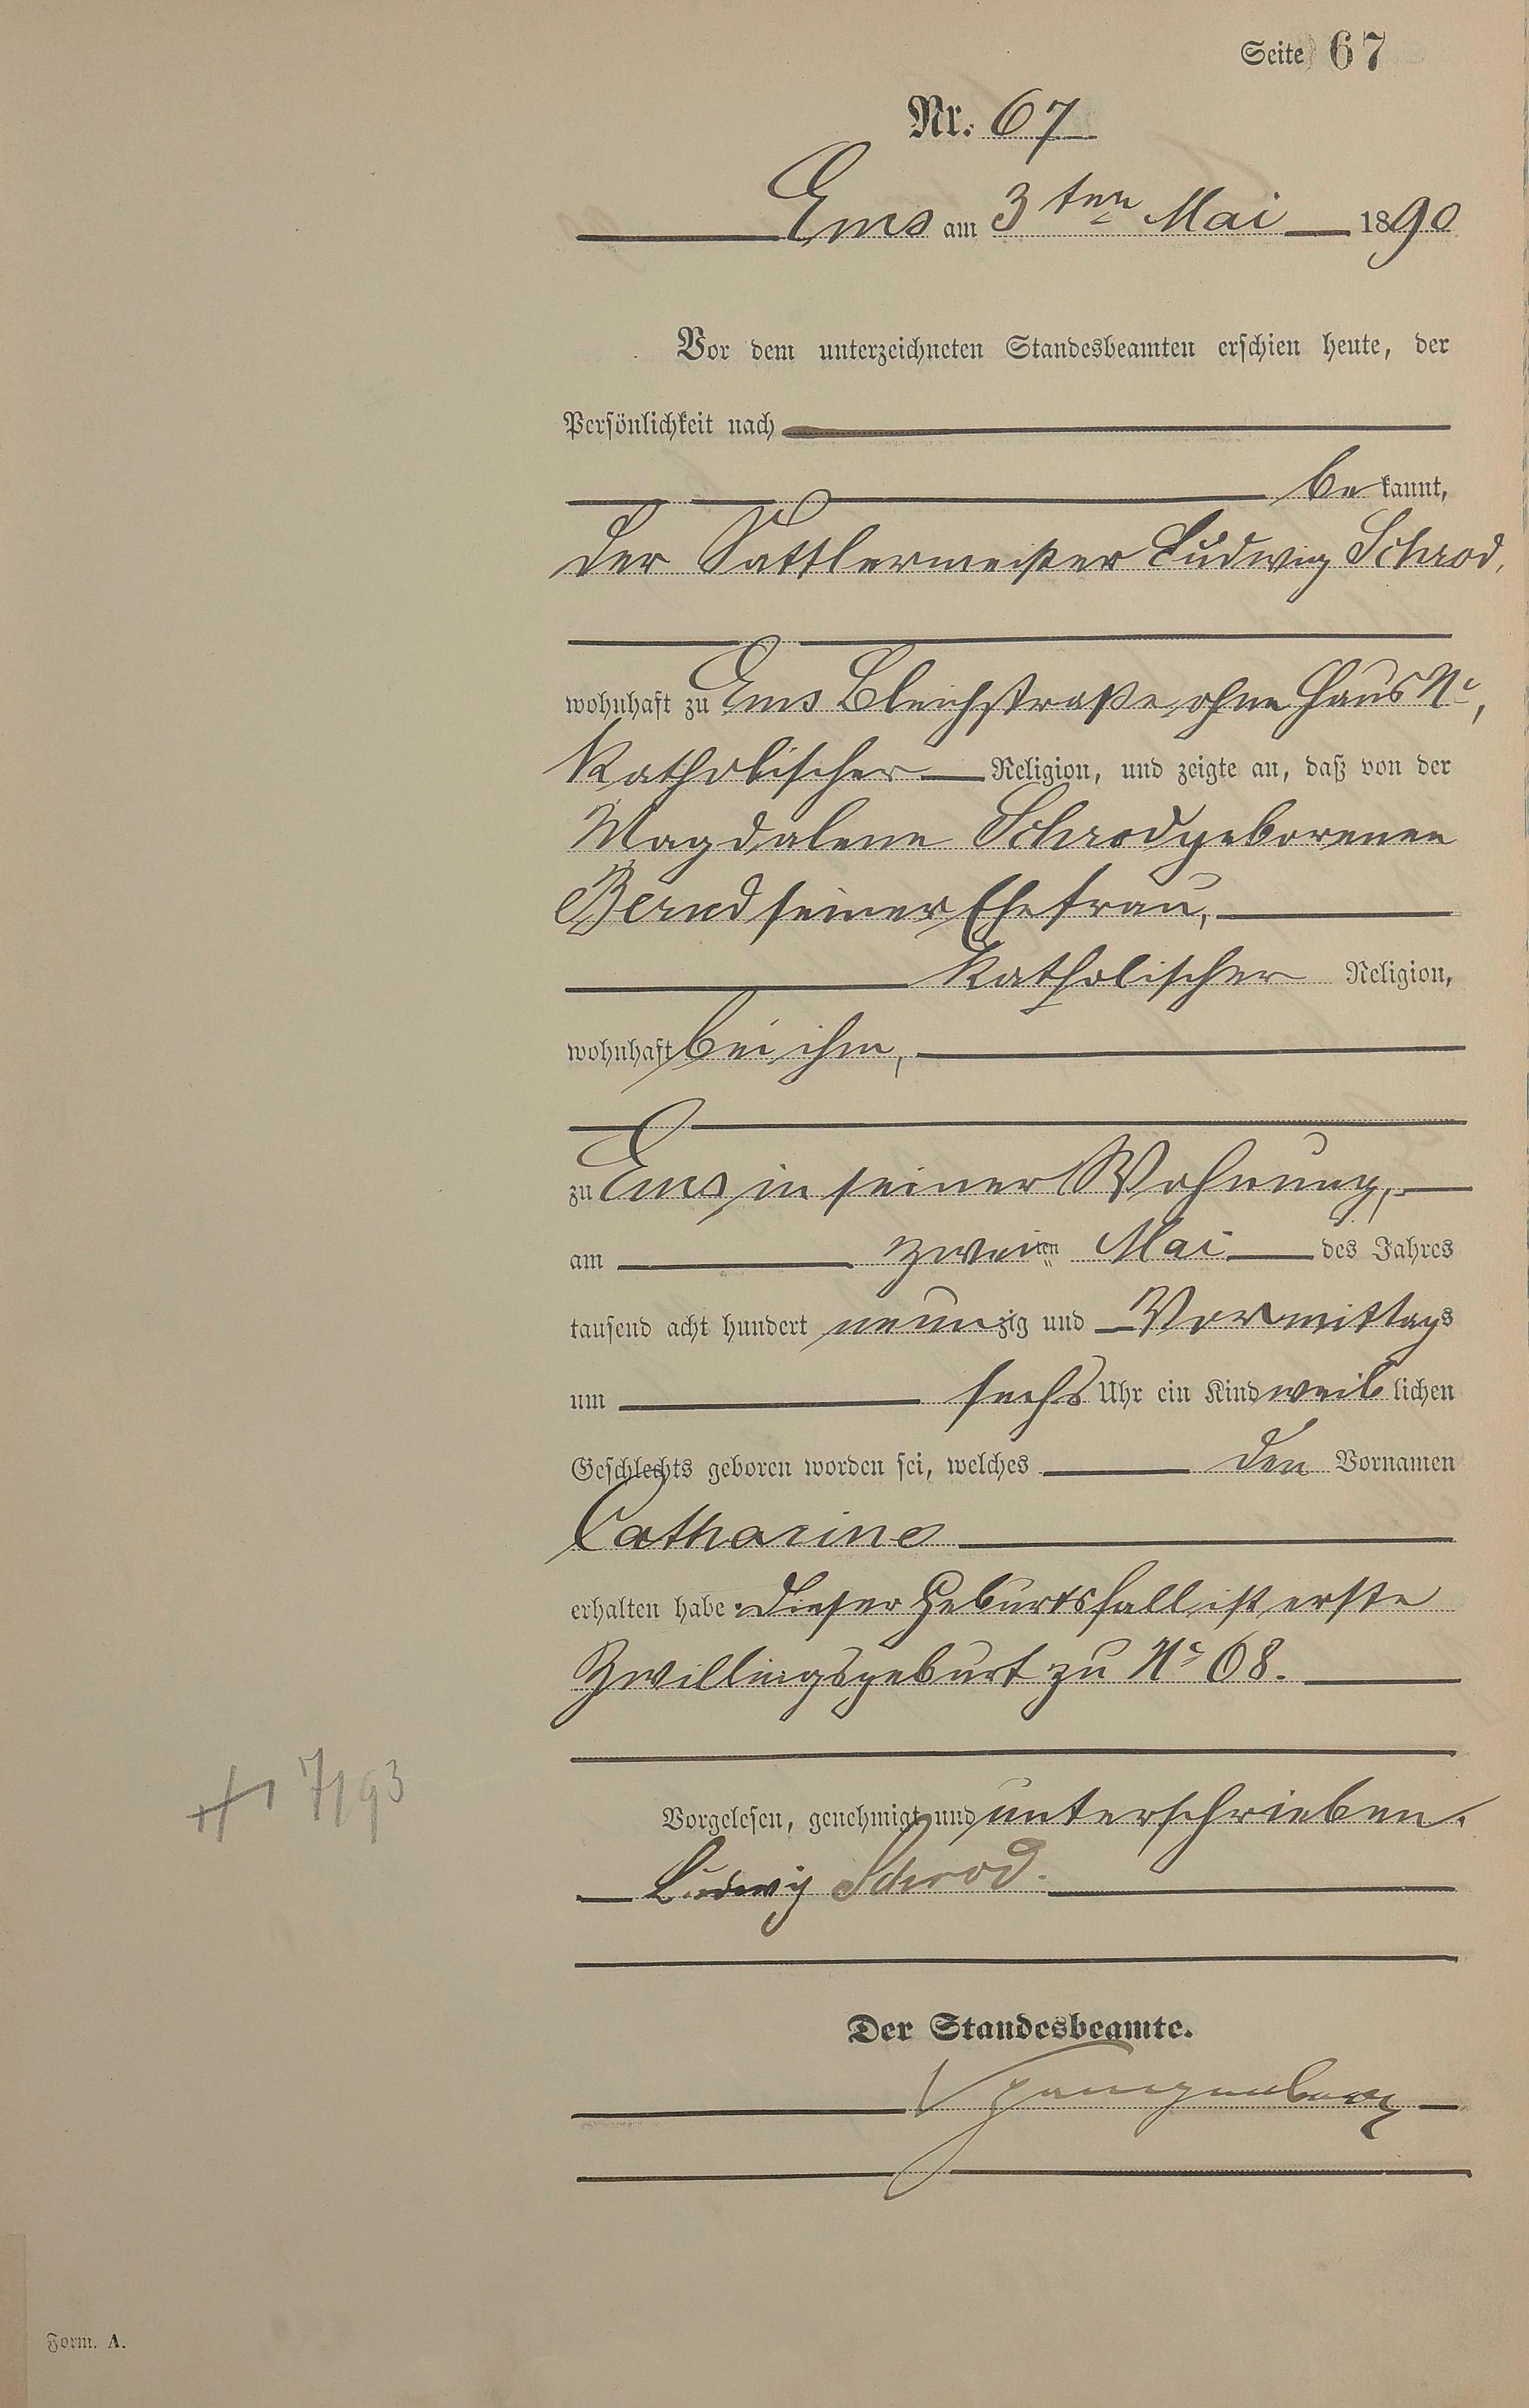 Seite 67
Nr. 67
Ems am 3ten Mai 1890
Vor dem unterzeichneten Standesbeamten erschien heute, der
Persönlichkeit nach
be kannt,
der Sattlermeister Ludwig Schrod,
wohnhaft zu Ems Bleichstraße ohne Haus No,
katholischer Religion, und zeigte an, daß von der
Magdalene Schrod geborenen
Bernd seiner Ehefrau,
katholischer Religion,
wohnhaft bei ihm,
zu Ems in seiner Wohnung,
am zweiten Mai des Jahres
tausend acht hundert neunzig und Vormittags
um sechs Uhr ein Kind weiblichen
Geschlechts geboren worden sei, welches den Vornamen
Catharine
erhalten habe. Dieser Geburtsfall ist erste
Zwillingsgeburt zu No 68.
7/93
Vorgelesen, genehmigt und unterschrieben.
Ludwig Schrod.
Der Standesbeamte.
Form. A.